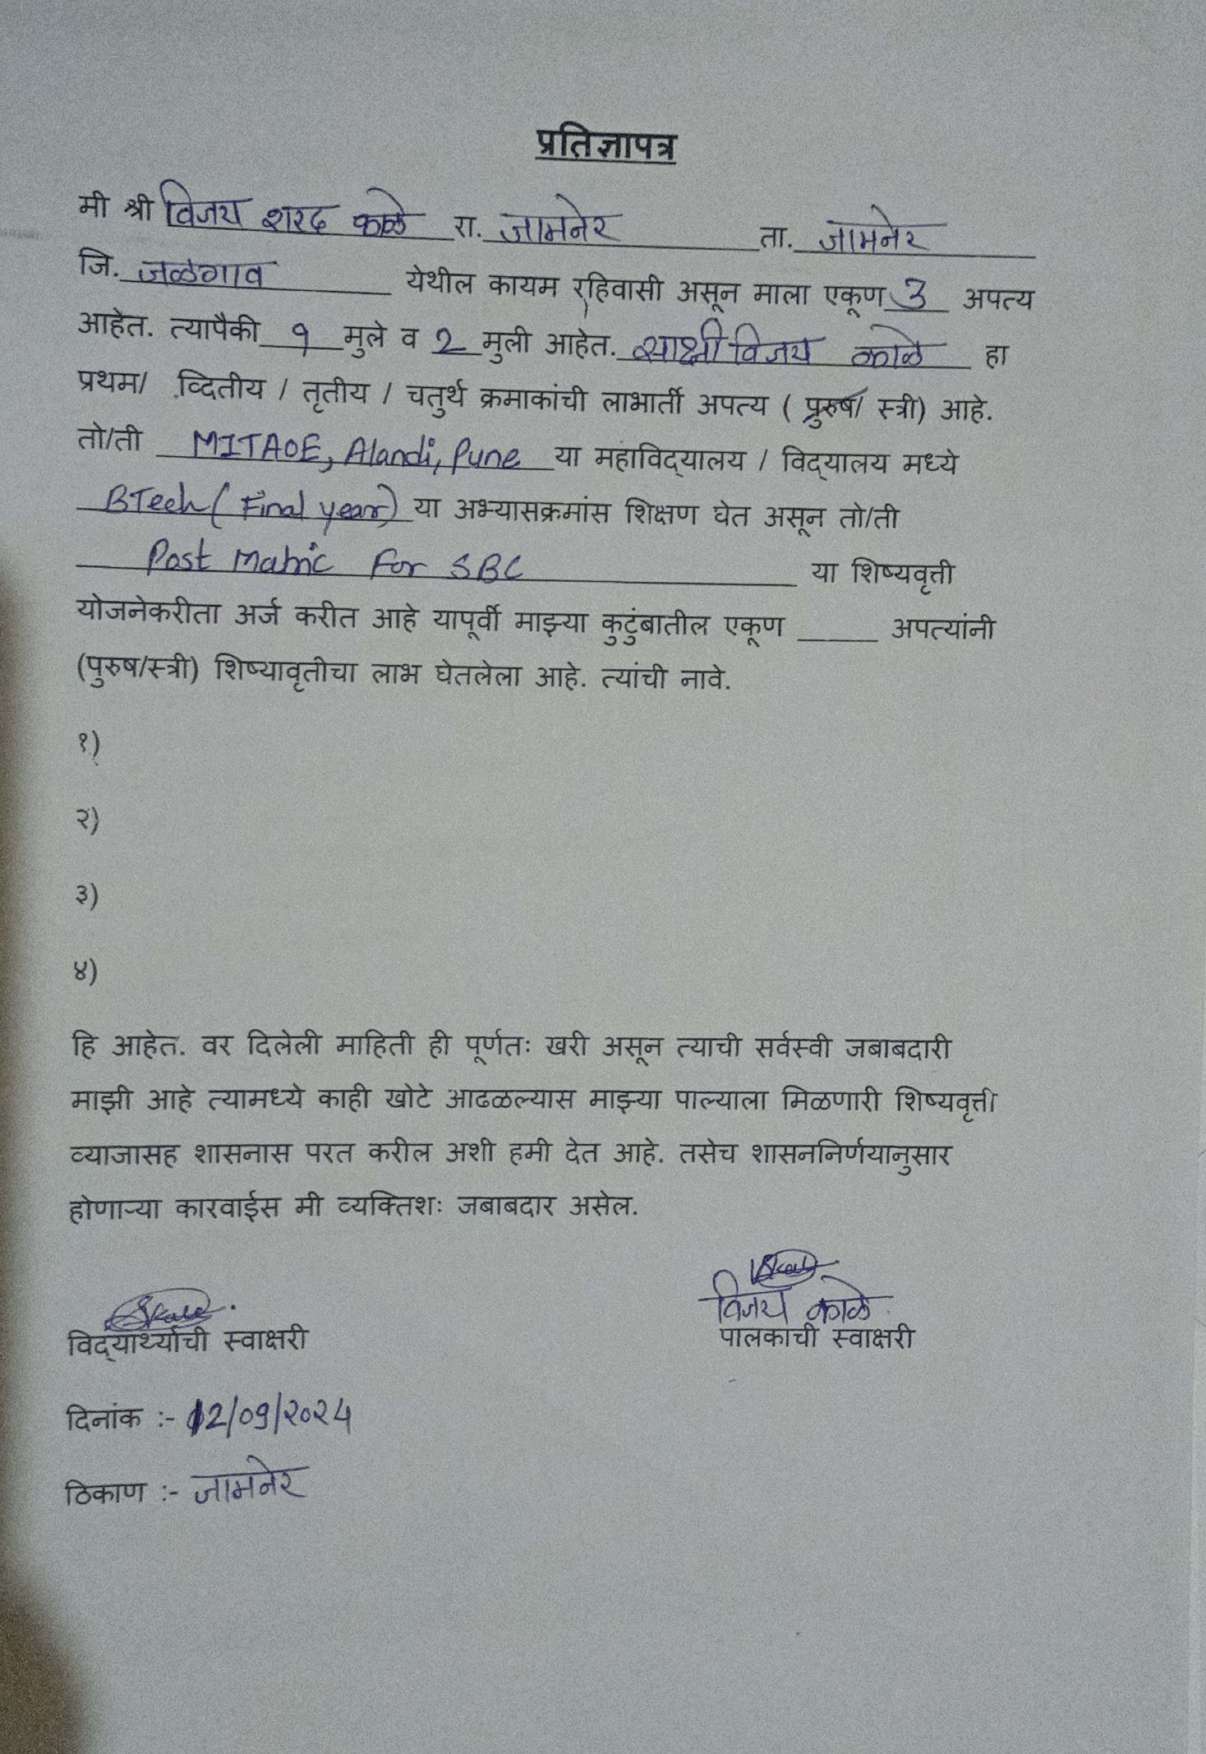 प्रतिज्ञापत्र
मी श्री विजय शरद काळे रा. जामनेर ता. जामनेर
जि. जळगाव येथील कायम रहिवासी असून माला एकूण 3 अपत्य
आहेत. त्यापैकी १ मुले व 2 मुली आहेत. साक्षी विजय काळे हा
प्रथम/ व्दितीय / तृतीय / चतुर्थ क्रमाकांची लाभार्ती अपत्य ( पुरुष/ स्त्री) आहे.
तो/ती MITAOE, Alandi, Pune या महाविद्यालय / विद्यालय मध्ये
BTech ( Final year) या अभ्यासक्रमांस शिक्षण घेत असून तो/ती
Post Matric For SBC या शिष्यवृत्ती
योजनेकरीता अर्ज करीत आहे यापूर्वी माझ्या कुटुंबातील एकूण _____ अपत्यांनी
(पुरुष/स्त्री) शिष्यावृतीचा लाभ घेतलेला आहे. त्यांची नावे.
१)
२)
३)
४)
हि आहेत. वर दिलेली माहिती ही पूर्णतः खरी असून त्याची सर्वस्वी जबाबदारी
माझी आहे त्यामध्ये काही खोटे आढळल्यास माझ्या पाल्याला मिळणारी शिष्यवृत्ती
व्याजासह शासनास परत करील अशी हमी देत आहे. तसेच शासननिर्णयानुसार
होणाऱ्या कारवाईस मी व्यक्तिशः जबाबदार असेल.
Skale.
विजय काळे
विद्यार्थ्याची स्वाक्षरी पालकाची स्वाक्षरी
दिनांक :- 12/09/2024
ठिकाण :- जामनेर